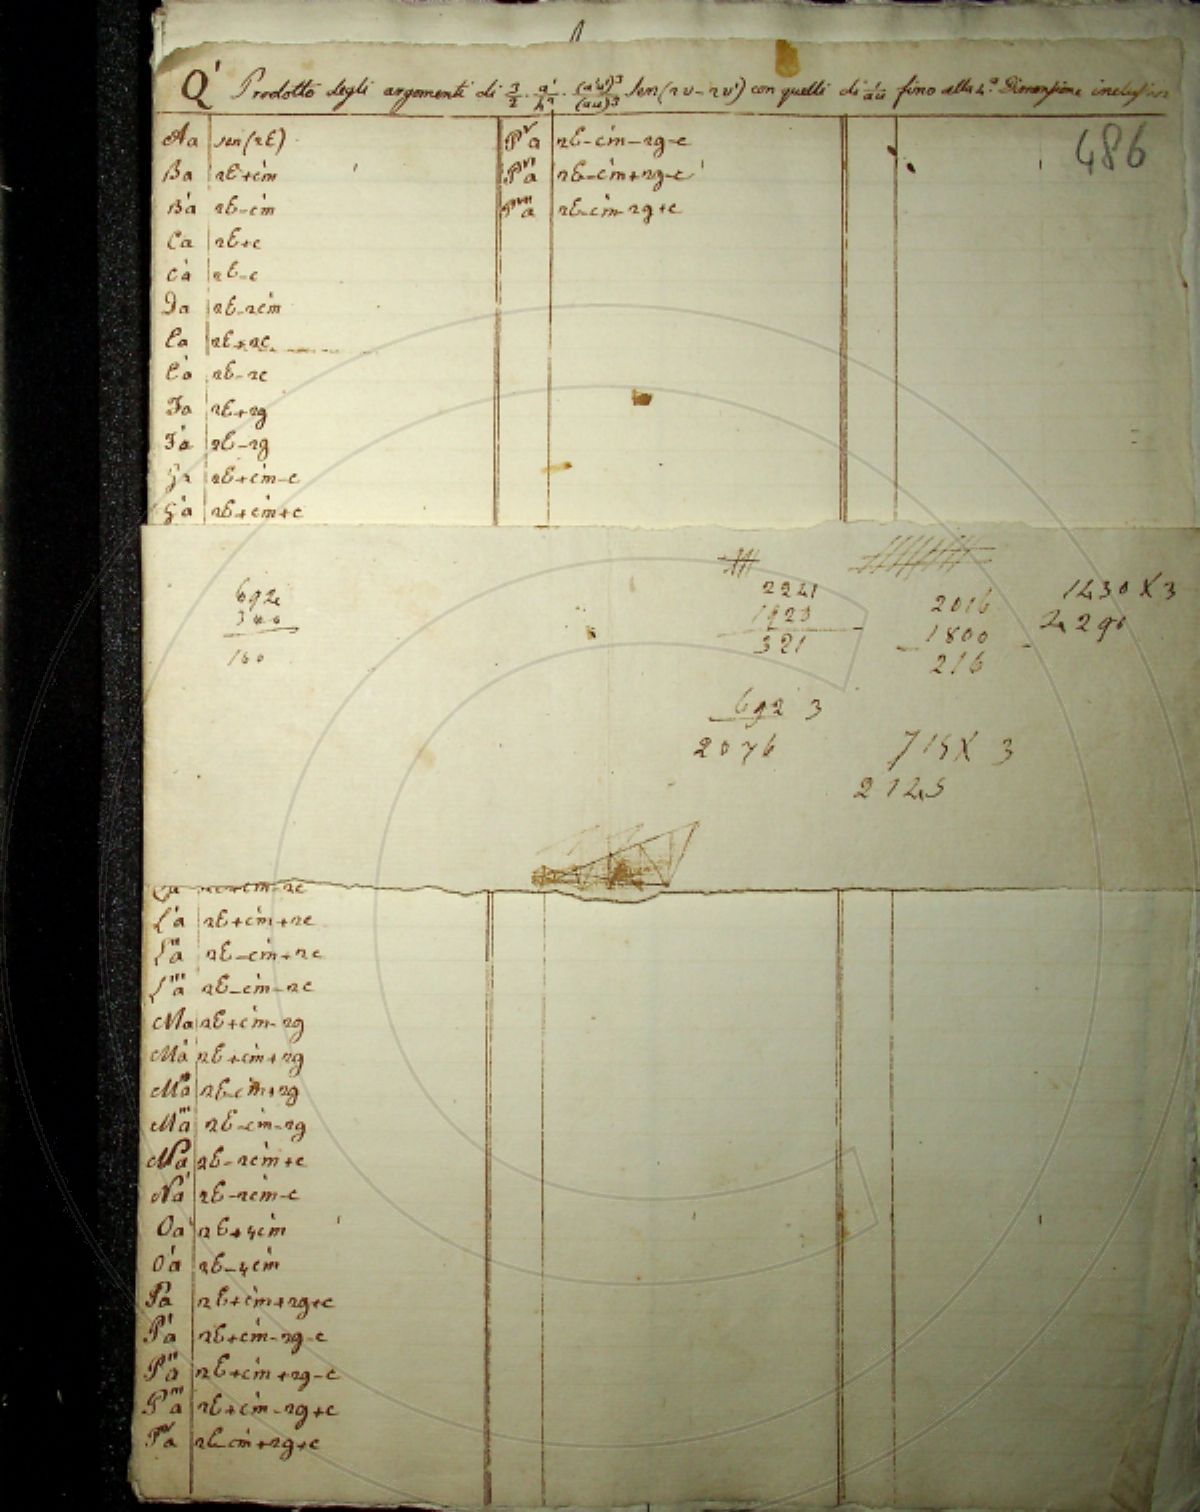 Q' Prodotto degli argomenti di 3/2 . a'/h² . (a'u')³/(au)³ Sen(2v-2v') con quelli di fino alla 4.ª Dimensione inclusive
486
Aa sen(2E)
Ba 2E+cm
B'a 2E-cm
Ca 2E+c
C'a 2E-c
Da 2E-2cm
Ea 2E+2c
E'a 2E-2c
Fa 2E+2g
F'a 2E-2g
Ga 2E+cm-c
G'a 2E+cm+c
Pᵛa 2E-cm-2g-c
Pᵛᴵa 2E-cm+2g-c
Pᵛᴵᴵa 2E-cm-2g+c
692
160
2221
1923
321
2016
1800
216
1430 X 3
4290
692 3
2076
715 X 3
2145
2E+cm-2c
L'a 2E+cm+2c
L''a 2E-cm+2c
L'''a 2E-cm-2c
Ma 2E+cm-2g
M'a 2E+cm+2g
M''a 2E-cm+2g
M'''a 2E-cm-2g
Na 2E-2cm+c
N'a 2E-2cm-c
Oa 2E+4cm
O'a 2E-4cm
Pa 2E+cm+2g+c
P'a 2E+cm-2g-c
P''a 2E+cm+2g-c
P'''a 2E+cm-2g+c
Pᴵⱽa 2E-cm+2g+c